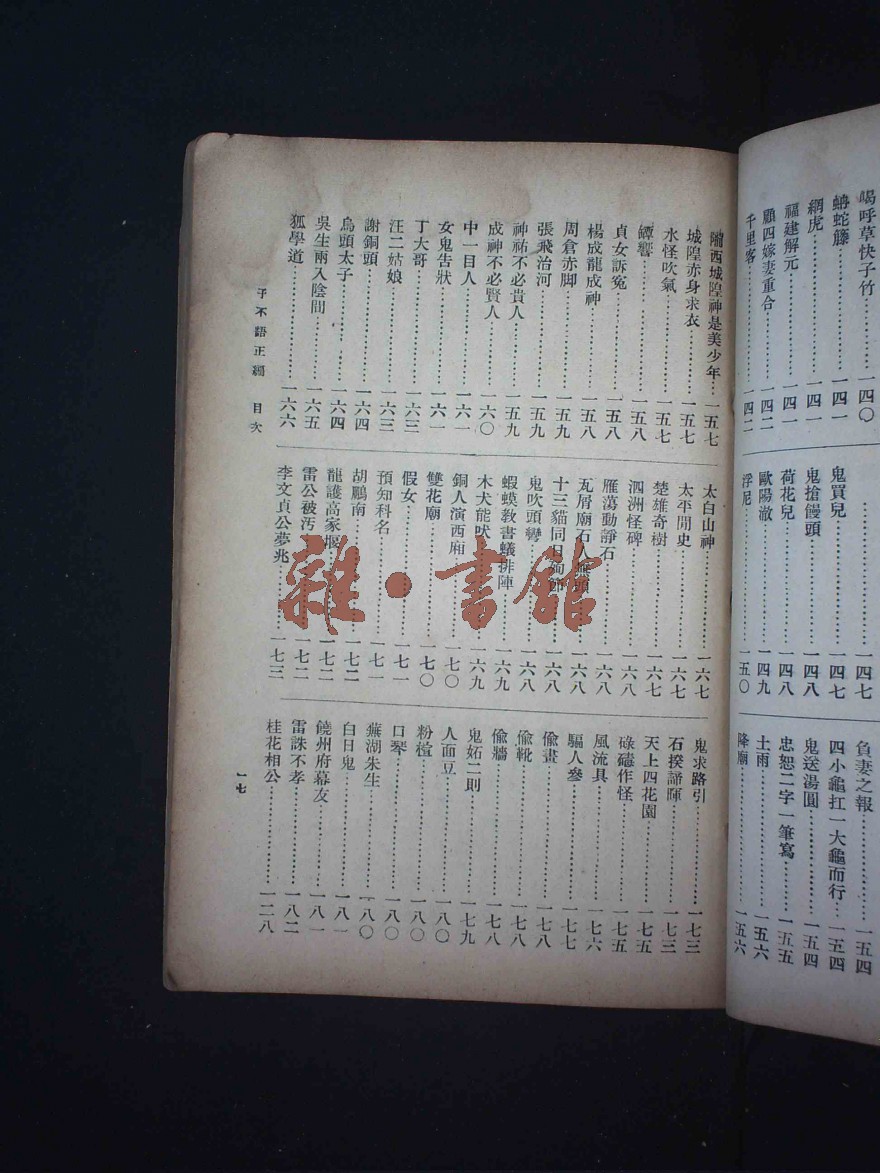 蝎呼草快子竹……一四〇
蚺蛇藤……一四一
網虎……一四一
福建解元……一四一
顧四嫁妻重合……一四二
千里客……一四二
鬼買兒……一四七
鬼搶饅頭……一四八
荷花兒……一四八
歐陽澈……一四九
浮尼……一五〇
負妻之報……一五四
四小龜扛一大龜而行……一五四
鬼送湯圓……一五四
忠恕二字一筆寫……一五五
土雨……一五六
降廟……一五六
隴西城隍神是美少年……一五七
城隍赤身求衣……一五七
水怪吹氣……一五七
鐔響……一五八
貞女訴冤……一五八
楊成龍成神……一五八
周倉赤脚……一五九
張飛治河……一五九
神祐不必貴人……一五九
成神不必賢人……一六〇
中一目人……一六一
女鬼告狀……一六一
丁大哥……一六三
汪二姑娘……一六三
謝銅頭……一六四
烏頭太子……一六四
吳生兩入陰間……一六五
狐學道……一六六
太白山神……一六七
太平閒史……一六七
楚雄奇樹……一六七
泗洲怪碑……一六八
雁蕩動靜石……一六八
瓦屑廟石人無頭……一六八
十三貓同日殉節……一六八
鬼吹頭彎……一六八
蝦蟆教書蟻排陣……一六九
木犬能吠……一六九
銅人演西廂……一七〇
雙花廟……一七〇
假女……一七一
預知科名……一七一
胡鵬南……一七二
龍護高家堰……一七二
雷公被汚……一七二
李文貞公夢兆……一七三
鬼求路引……一七三
石揆諦暉……一七三
天上四花園……一七五
碌礴作怪……一七五
風流具……一七六
驅人參……一七七
偸畫……一七八
偸靴……一七八
偸牆……一七八
鬼妬二則……一七九
人面豆……一八〇
粉楦……一八〇
口琴……一八〇
蕪湖朱生……一八〇
白日鬼……一八一
饒州府幕友……一八一
雷誅不孝……一八二
桂花相公……一二八
子不語正編 目次
一七
雜·書館